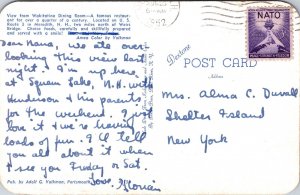 View from Wakitsina Dining Room—A famous restaur-
ant for over a quarter of a century. Located on U. S.
Route 3 in Meredith, N. H., two miles north of Weirs
Bridge. Choice foods, carefully and skillfully prepared
and served with a smile!
Ansco Color by Valkimar
Dear Nana, We ate over-
looking this view last
night. I'm up here
at Squam Lake, N.H. with
Henderson & his parents
for the weekend. I just
love it & we're having
loads of fun. I'll tell
you all about it when
I see you Friday or Sat.
Love, Florian
Pub. by Adolf G. Valkimar, Portsmouth
Dextone
6 - AM
1952
NATO
POST CARD
Address
Mrs. Alma C. Duvall
Shelter Island
New York